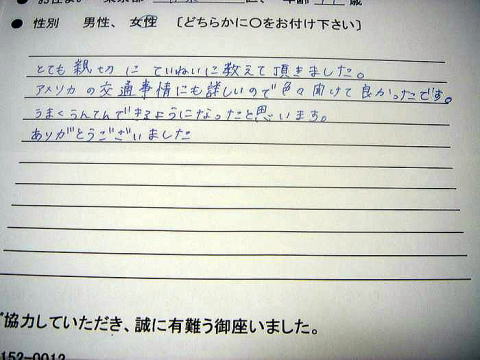 ● 性別　男性、 女性 〔どちらかに○をお付け下さい〕
とても親切に ていねいに教えて頂きました。
アメリカの交通事情にも詳しいので色々聞けて良かったです。
うまくうんてんできるようになったと思います。
ありがとうございました
協力していただき、誠に有難う御座いました。
152-0012